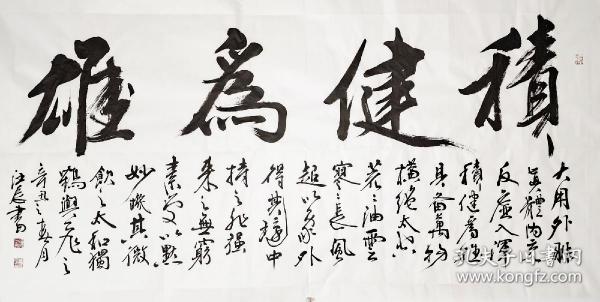 積健為雄
大用外腓
真體内充
反虛入渾
積健為雄
具備萬物
橫絕太空
荒〻油雲
寥〻長風
超以象外
得其環中
持之非強
來之無窮
素處以默
妙機其微
飲之太和獨
鶴與飛之
辛丑之春月
書
孔夫子旧书网
www.kongfz.com